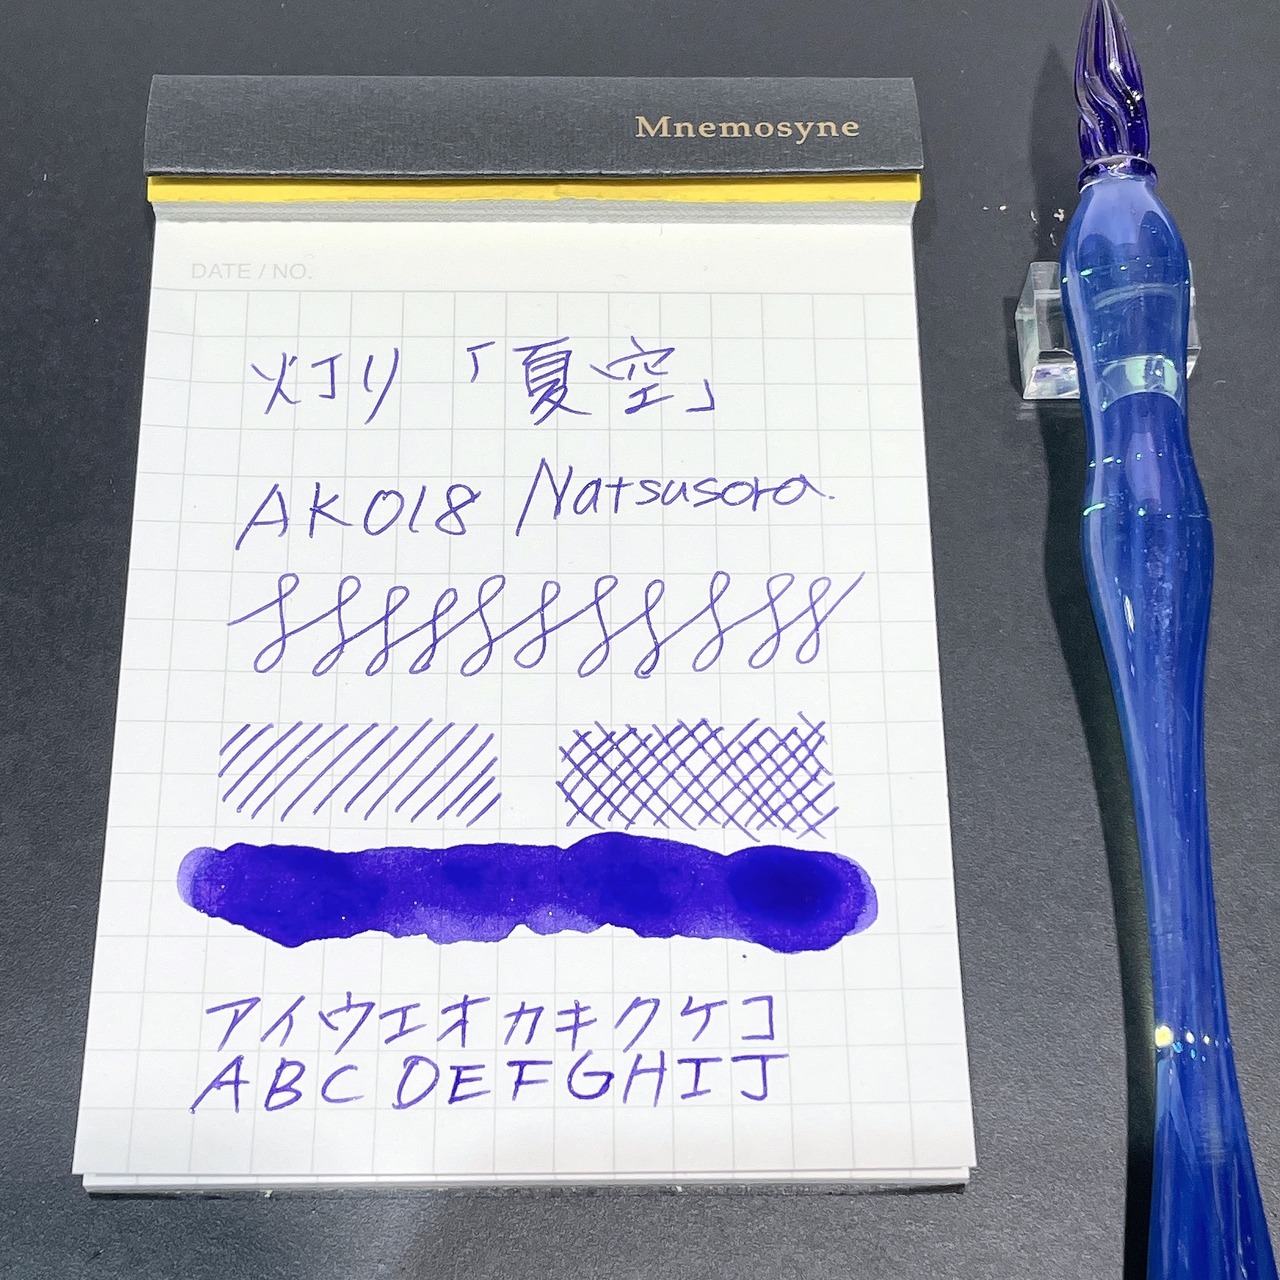 Mnemosyne
DATE / NO.
灯り 「夏空」
AK018 Natsusora.
アイウエオカキクケコ
ABCDEFGHIJ